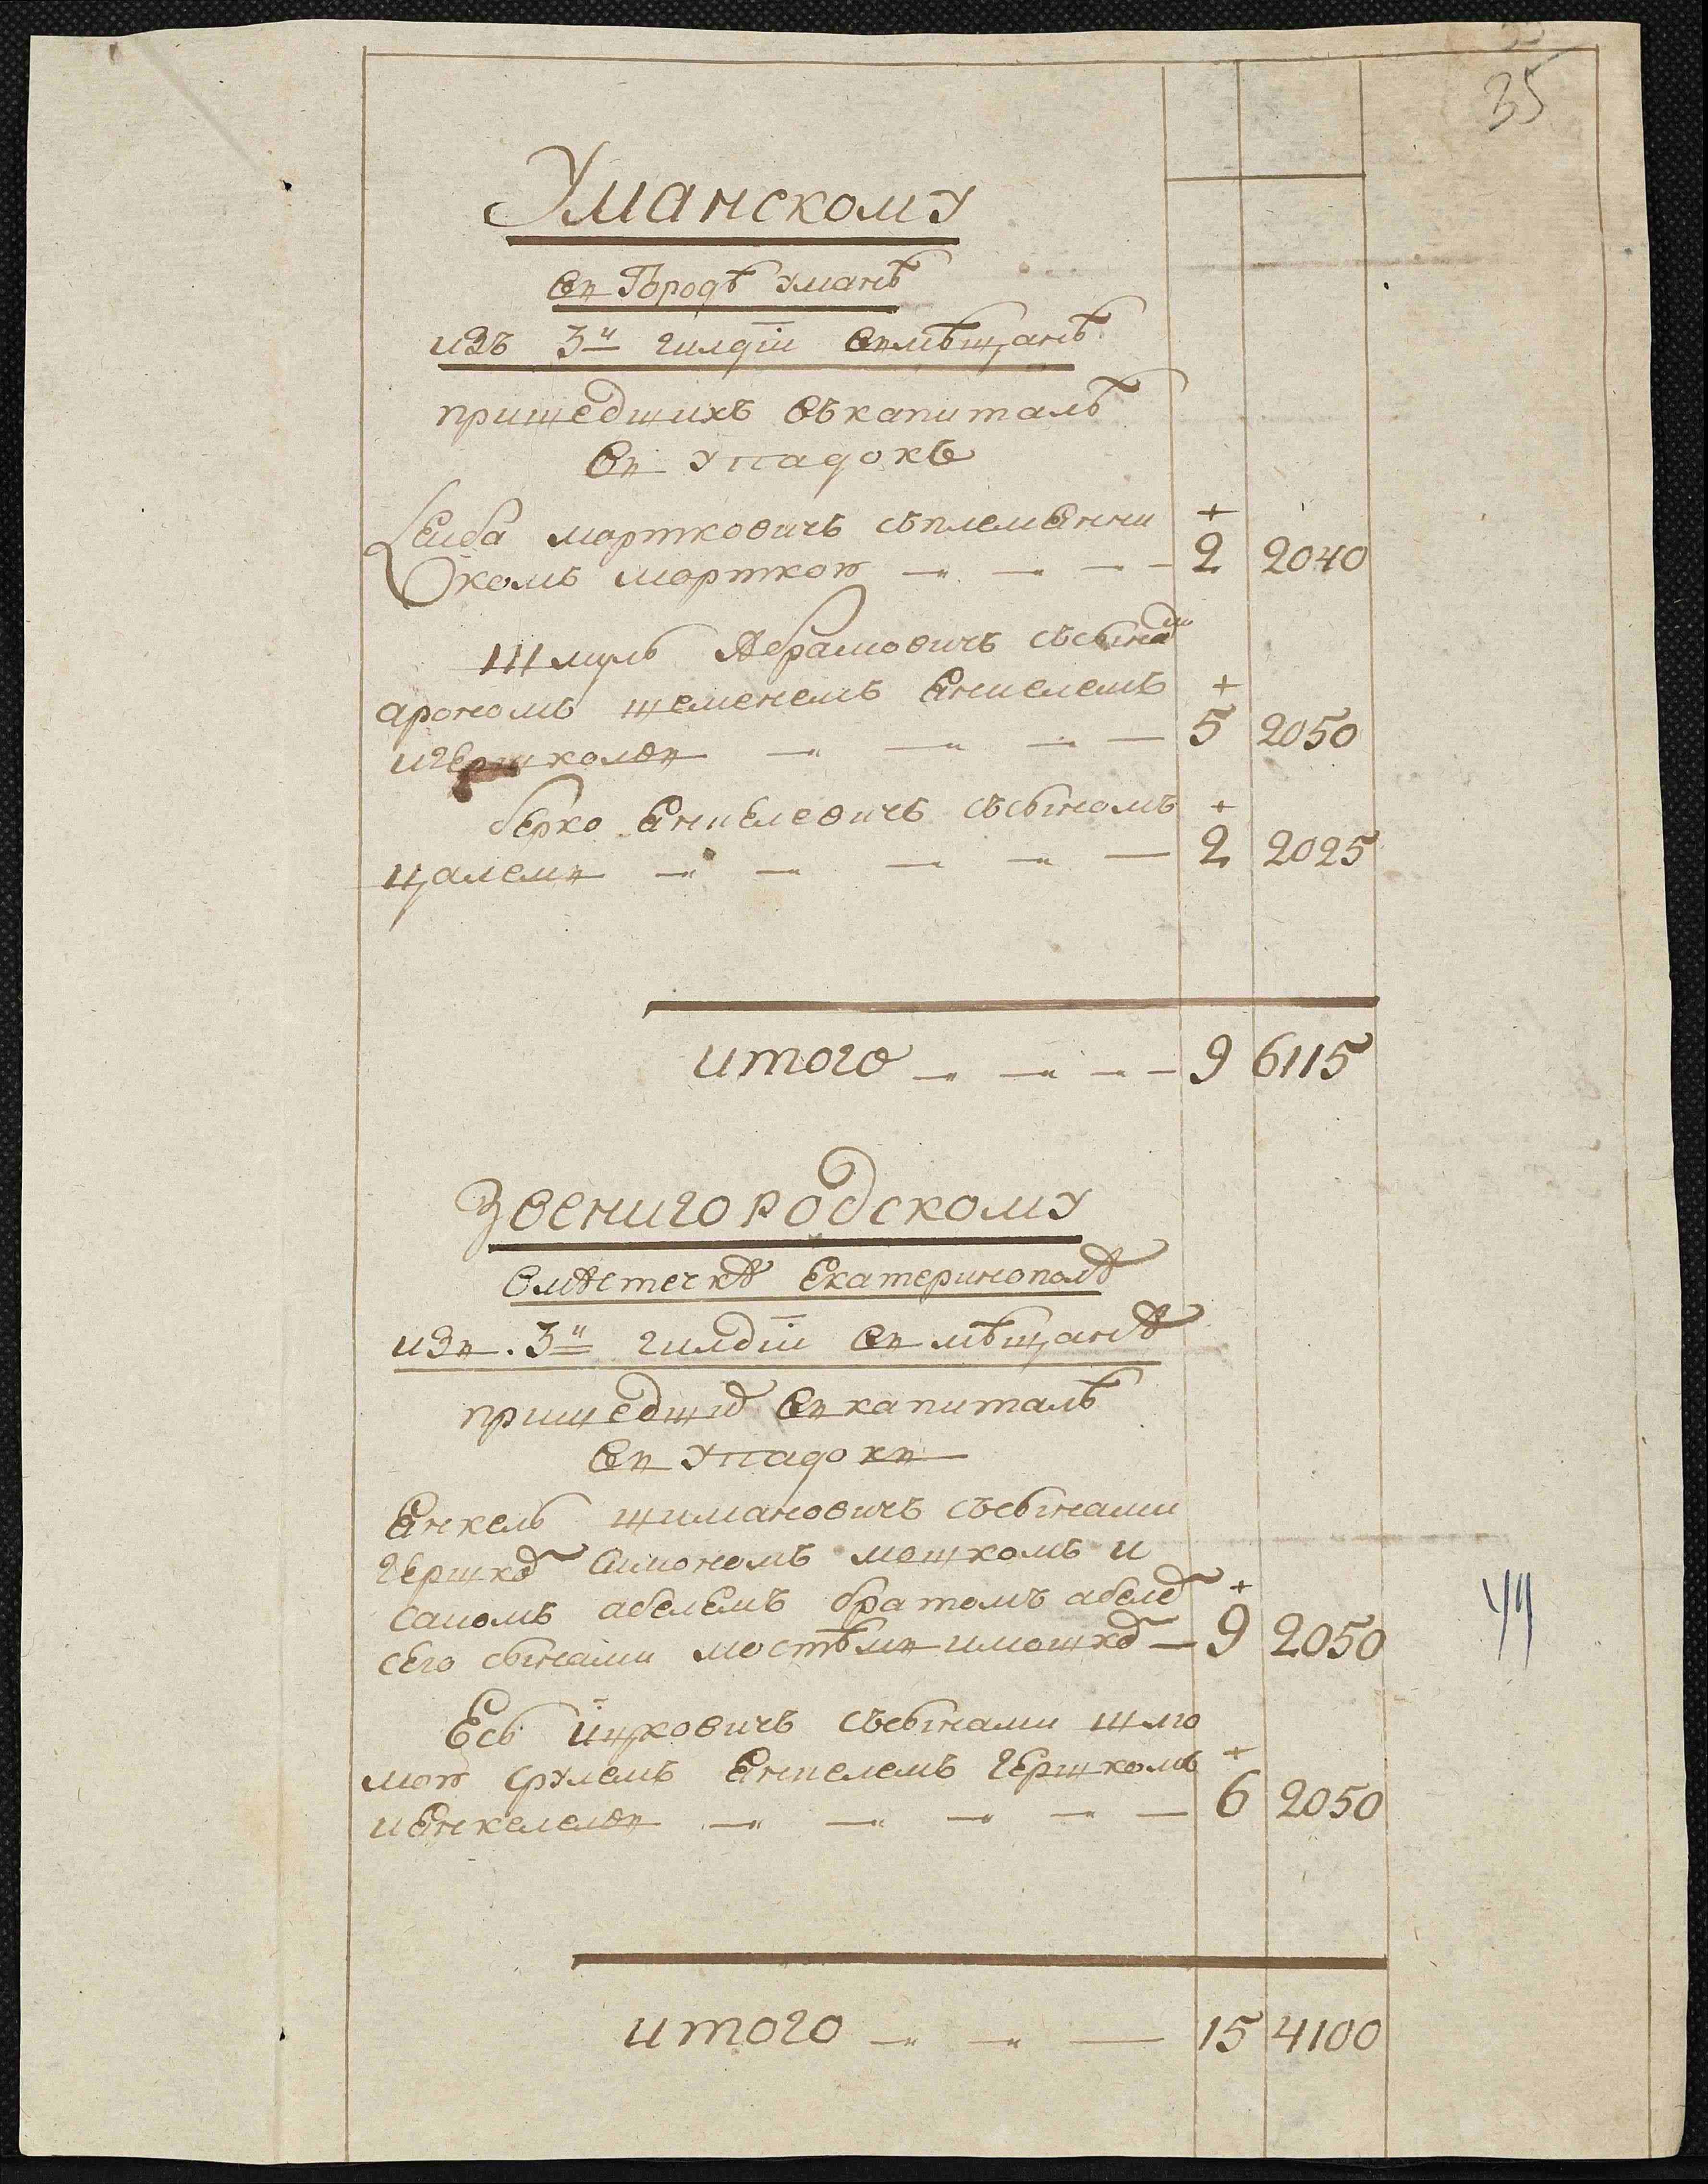 35
Уманскому
въ Городѣ Уманѣ
изъ 3й гилдіи въмѣщанѣ
пришедшихъ въкапиталѣ
въ упадокъ
Лейба мортковичъ съплемянни
комъ мортком 2 2040
Шмуль Абрамовичъ съсынами
арономъ шеменемъ Янкелемъ
игершкомъ 5 2050
берко Янкелевичъ съсыномъ
цалемъ 2 2025
итого 9 6115
Звенигородскому
вмѣстечкѣ Екатеринополѣ
изъ 3й гилдіи въ мѣщанѣ
пришедшихъ въкапиталѣ
въ упадокъ
Янкель шимановичъ съсынами
гершком Симономъ мошкомъ и
сапомъ абелемъ братомъ абелем
сего сынами мостѣмъ имошком 9 2050
Есь Ицковичъ съсынами шлио
мом срулемъ Янкелемъ гершкомъ
иЯнкелемъ 6 2050
44
итого 15 4100